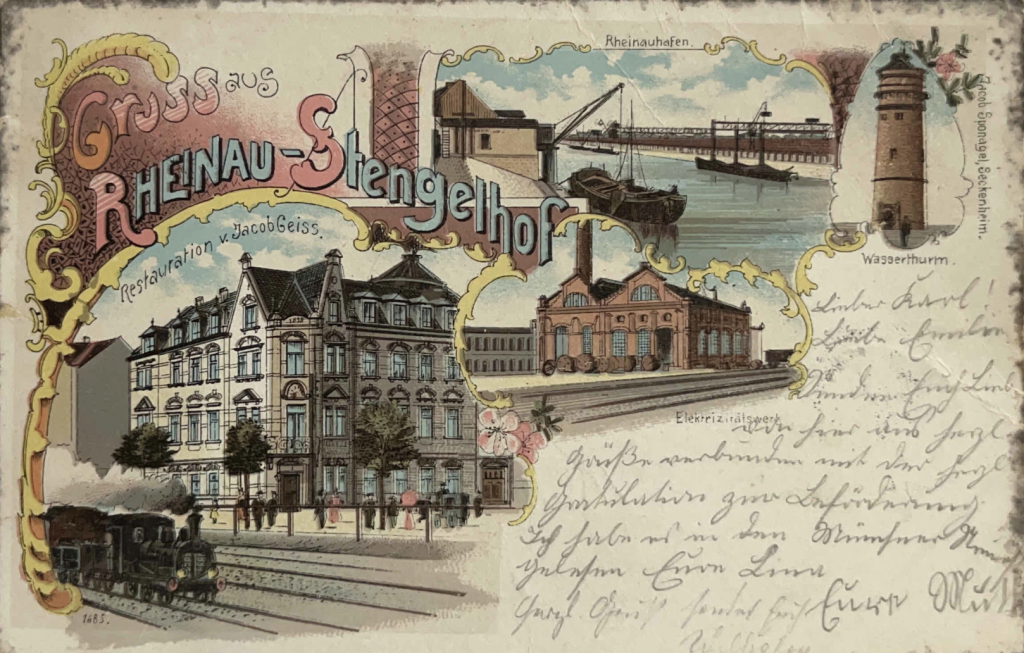 Gruss aus
RHEINAU-Stengelhof
Rheinauhafen.
Jacob Sponagel, Seckenheim.
Wasserthurm.
Restauration v. Jacob Geiss.
Elektrizitätswerk
1683.
Lieber Karl!
Liebe
von hier aus herzl
Grüße verbunden mit der herzl
Gratulation zur Beförderung.
Ich habe es in den Münchner
gelesen Eure Lina
Herzl. Gruß sendet Euch Eure